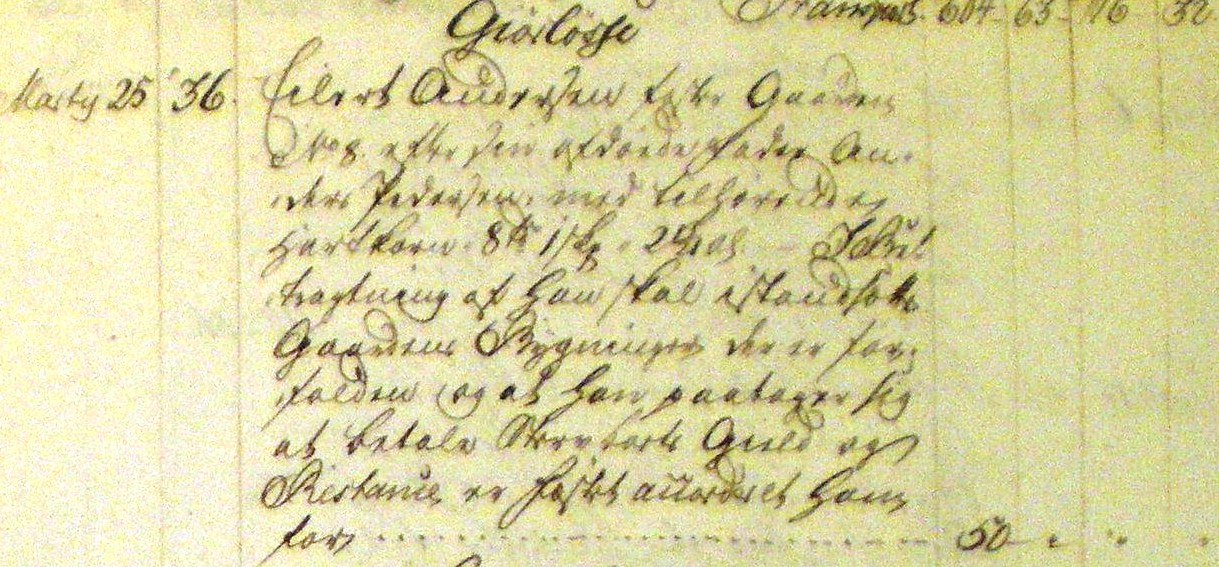 Transport. 604 - 63 - 116 - 32
Giörlösse
Marty 25 36. Eilert Andersen fæste Gaarden
No 8. efter sin afdøde fader An-
ders Pedersen, med tilhørende
Hartkorn 8 td 1 skp 2 Alb. - I Be-
tragtning af han skal istandsætte
Gaardens Bygninger der er for-
falden og at han paatager sig
at betale Sterv Gield og
Restance er fæstet accorderet ham
for 50